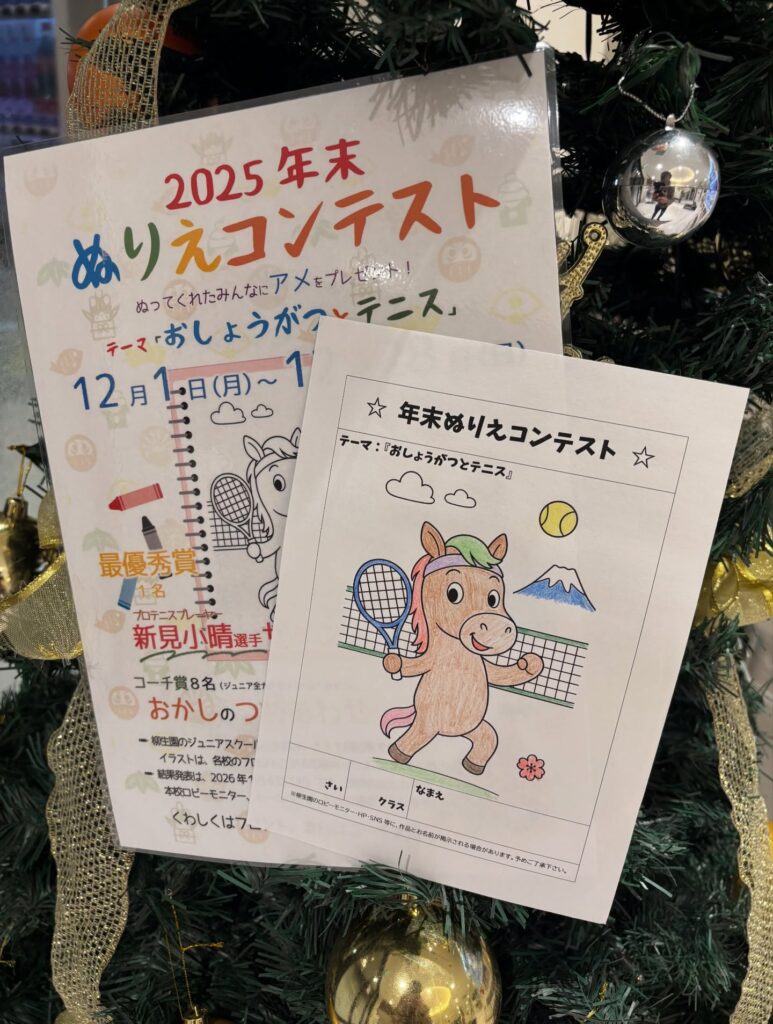 2025 年末
ぬりえコンテスト
ぬってくれたみんなにアメをプレゼント！
テーマ「おしょうがつとテニス」
12月1日(月)～1
最優秀賞
1名
プロテニスプレーヤー
新見小晴選手サ
コーチ賞8名 (ジュニア全
おかしのつ
柳生園のジュニアスクー
イラストは、各校のフロ
結果発表は、2026年1
本校ロビーモニター、
くわしくはフロ
☆ 年末ぬりえコンテスト ☆
テーマ：『おしょうがつとテニス』
さい
クラス
なまえ
※柳生園のロビーモニター・HP・SNS 等に、作品とお名前が掲示される場合があります。予めご了承下さい。